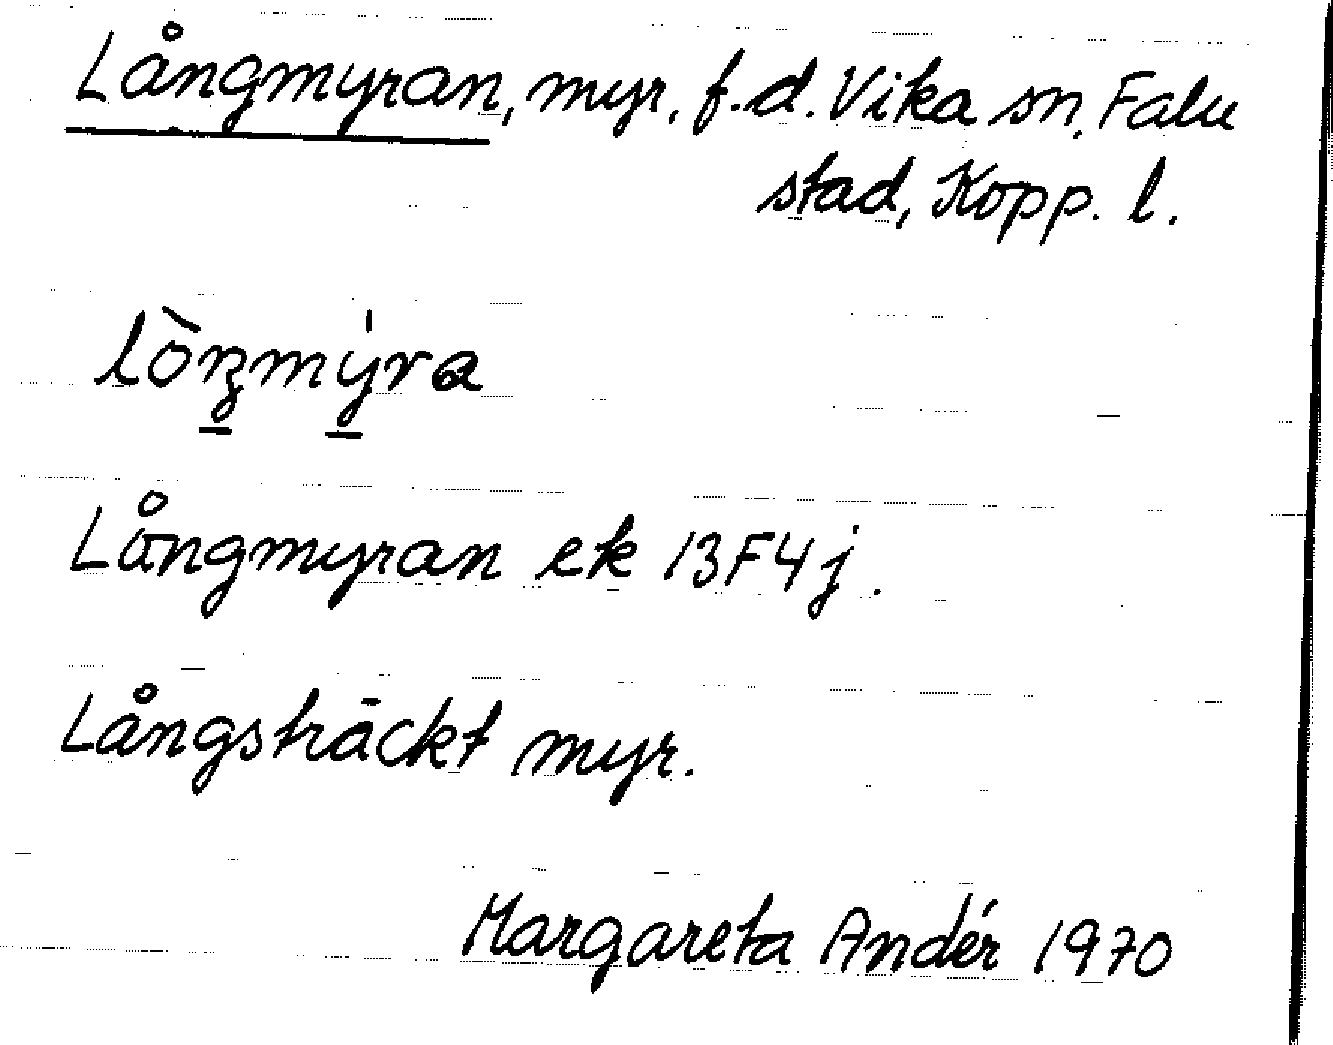 Långmyran, myr, f.d. Vika sn, Falu
stad, Kopp. l.
lòŋmýra
Långmyran ek 13F4j.
Långsträckt myr.
Margareta Andér 1970